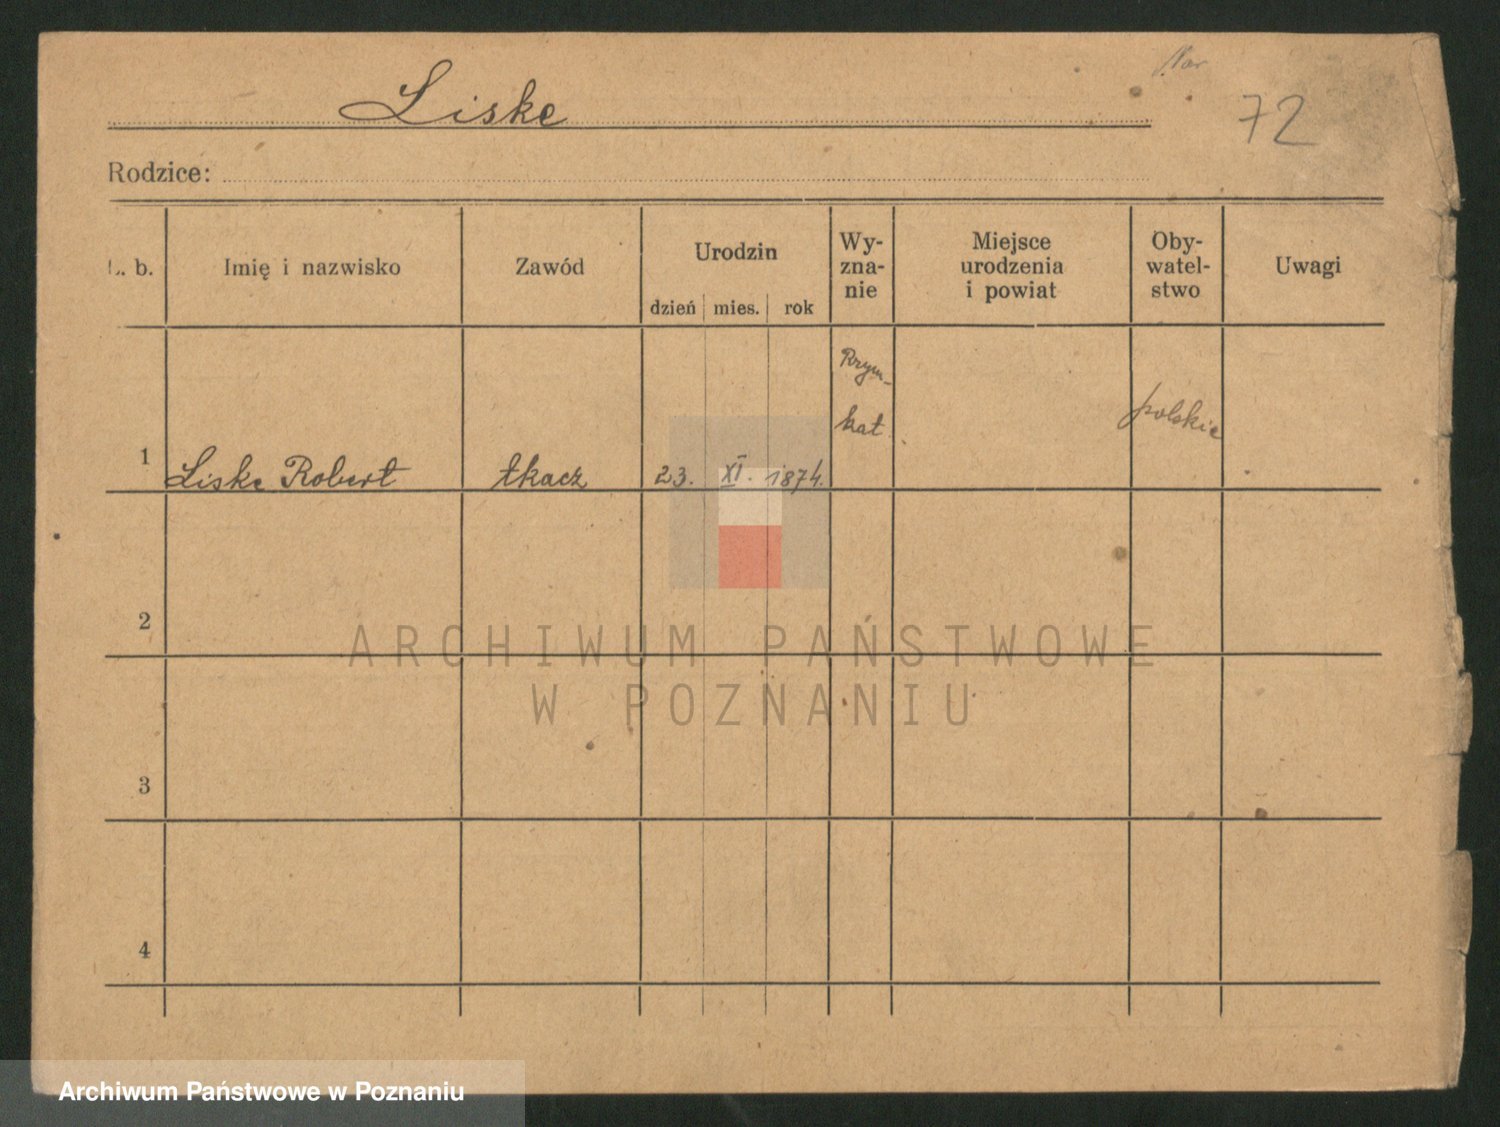 Liske
72
Rodzice:
L. b.
Imię i nazwisko
Zawód
Urodzin
dzień mies. rok
Wy-
zna-
nie
Miejsce
urodzenia
i powiat
Oby-
watel-
stwo
Uwagi
1 Liske Robert tkacz 23. XI. 1874.
Rzym-
kat.
polskie
2
3
4
ARCHIWUM PAŃSTWOWE
W POZNANIU
Archiwum Państwowe w Poznaniu